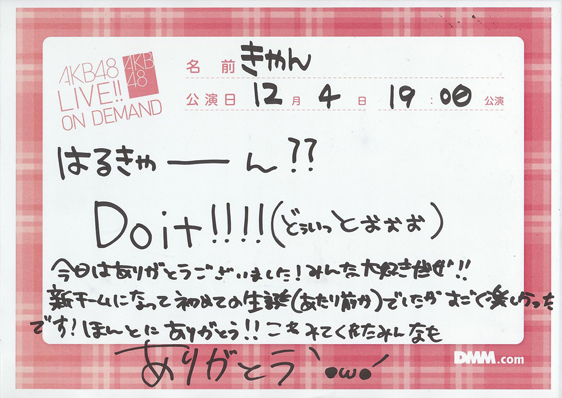 AKB48
LIVE!!
ON DEMAND
AKB
48
名前 きゃん
公演日 12月 4日 19:00 公演
はるきゃーーん??
Doit!!!!(どぅいっとぉぉぉ)
今日はありがとうございました!みんな大好きだぜ!!
新チームになって初めての生誕(あたり前か)でしたがすごく楽しかった
です!ほんとにありがとう!!こられてくれたみんなも
ありがとう`•ω•´
DMM.com